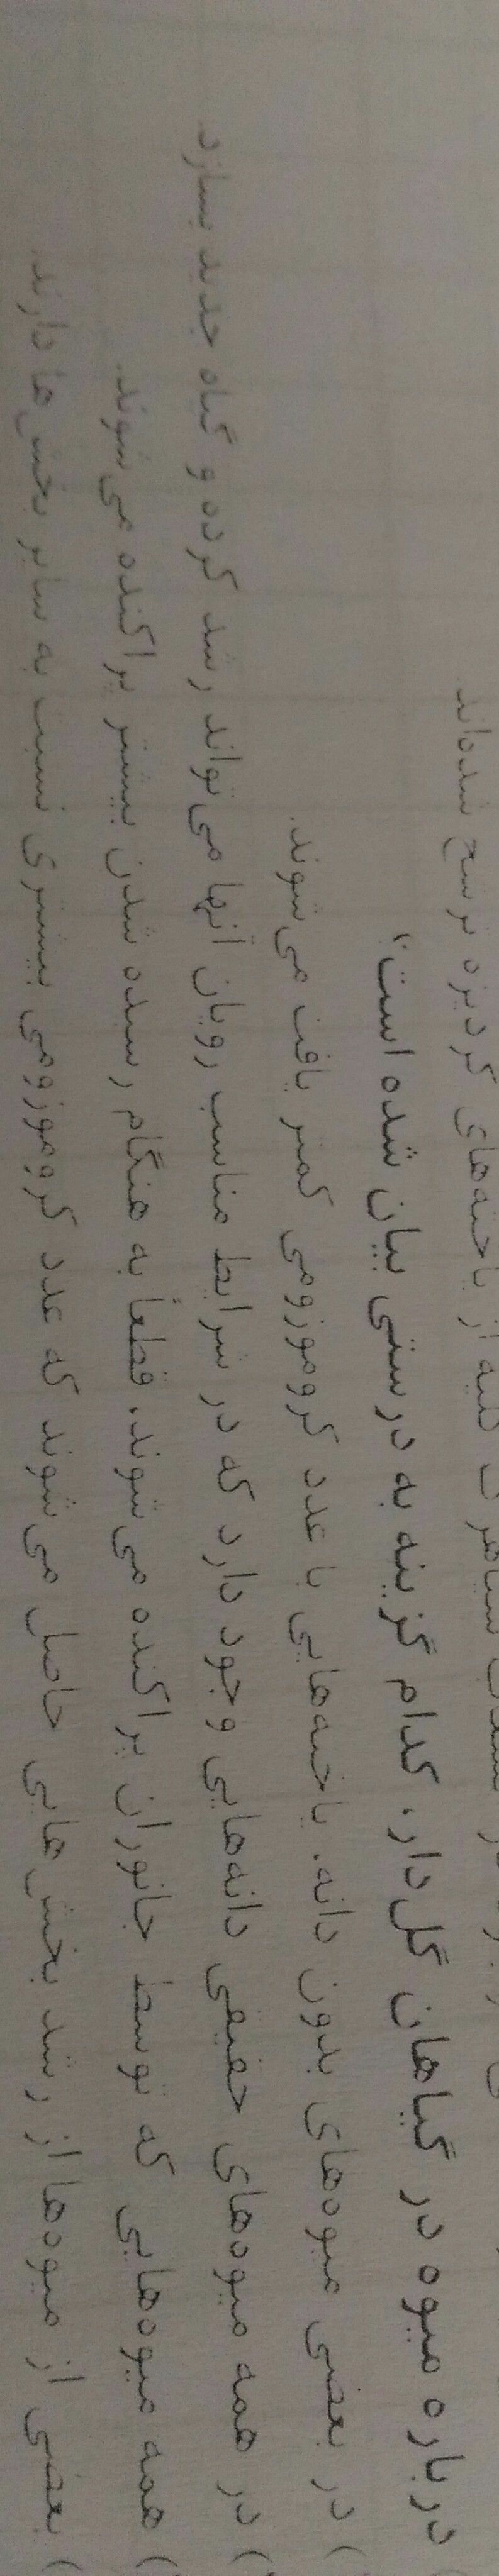 کلیه از یاخته‌های گردیزه ترشح شده‌اند
درباره میوه در گیاهان گل‌دار، کدام گزینه به درستی بیان شده است؟
) در بعضی میوه‌های بدون دانه، یاخته‌هایی با عدد کروموزومی کمتر یافت می‌شوند.
) در همه میوه‌های حقیقی دانه‌هایی وجود دارد که در شرایط مناسب رویان آنها می‌تواند رشد کرده و گیاه جدید بسازد.
) همه میوه‌هایی که توسط جانوران پراکنده می‌شوند، قطعاً به هنگام رسیده شدن بیشتر پراکنده می‌شوند.
) بعضی از میوه‌ها از رشد بخش‌هایی حاصل می‌شوند که عدد کروموزومی بیشتری نسبت به سایر بخش‌ها دارند.